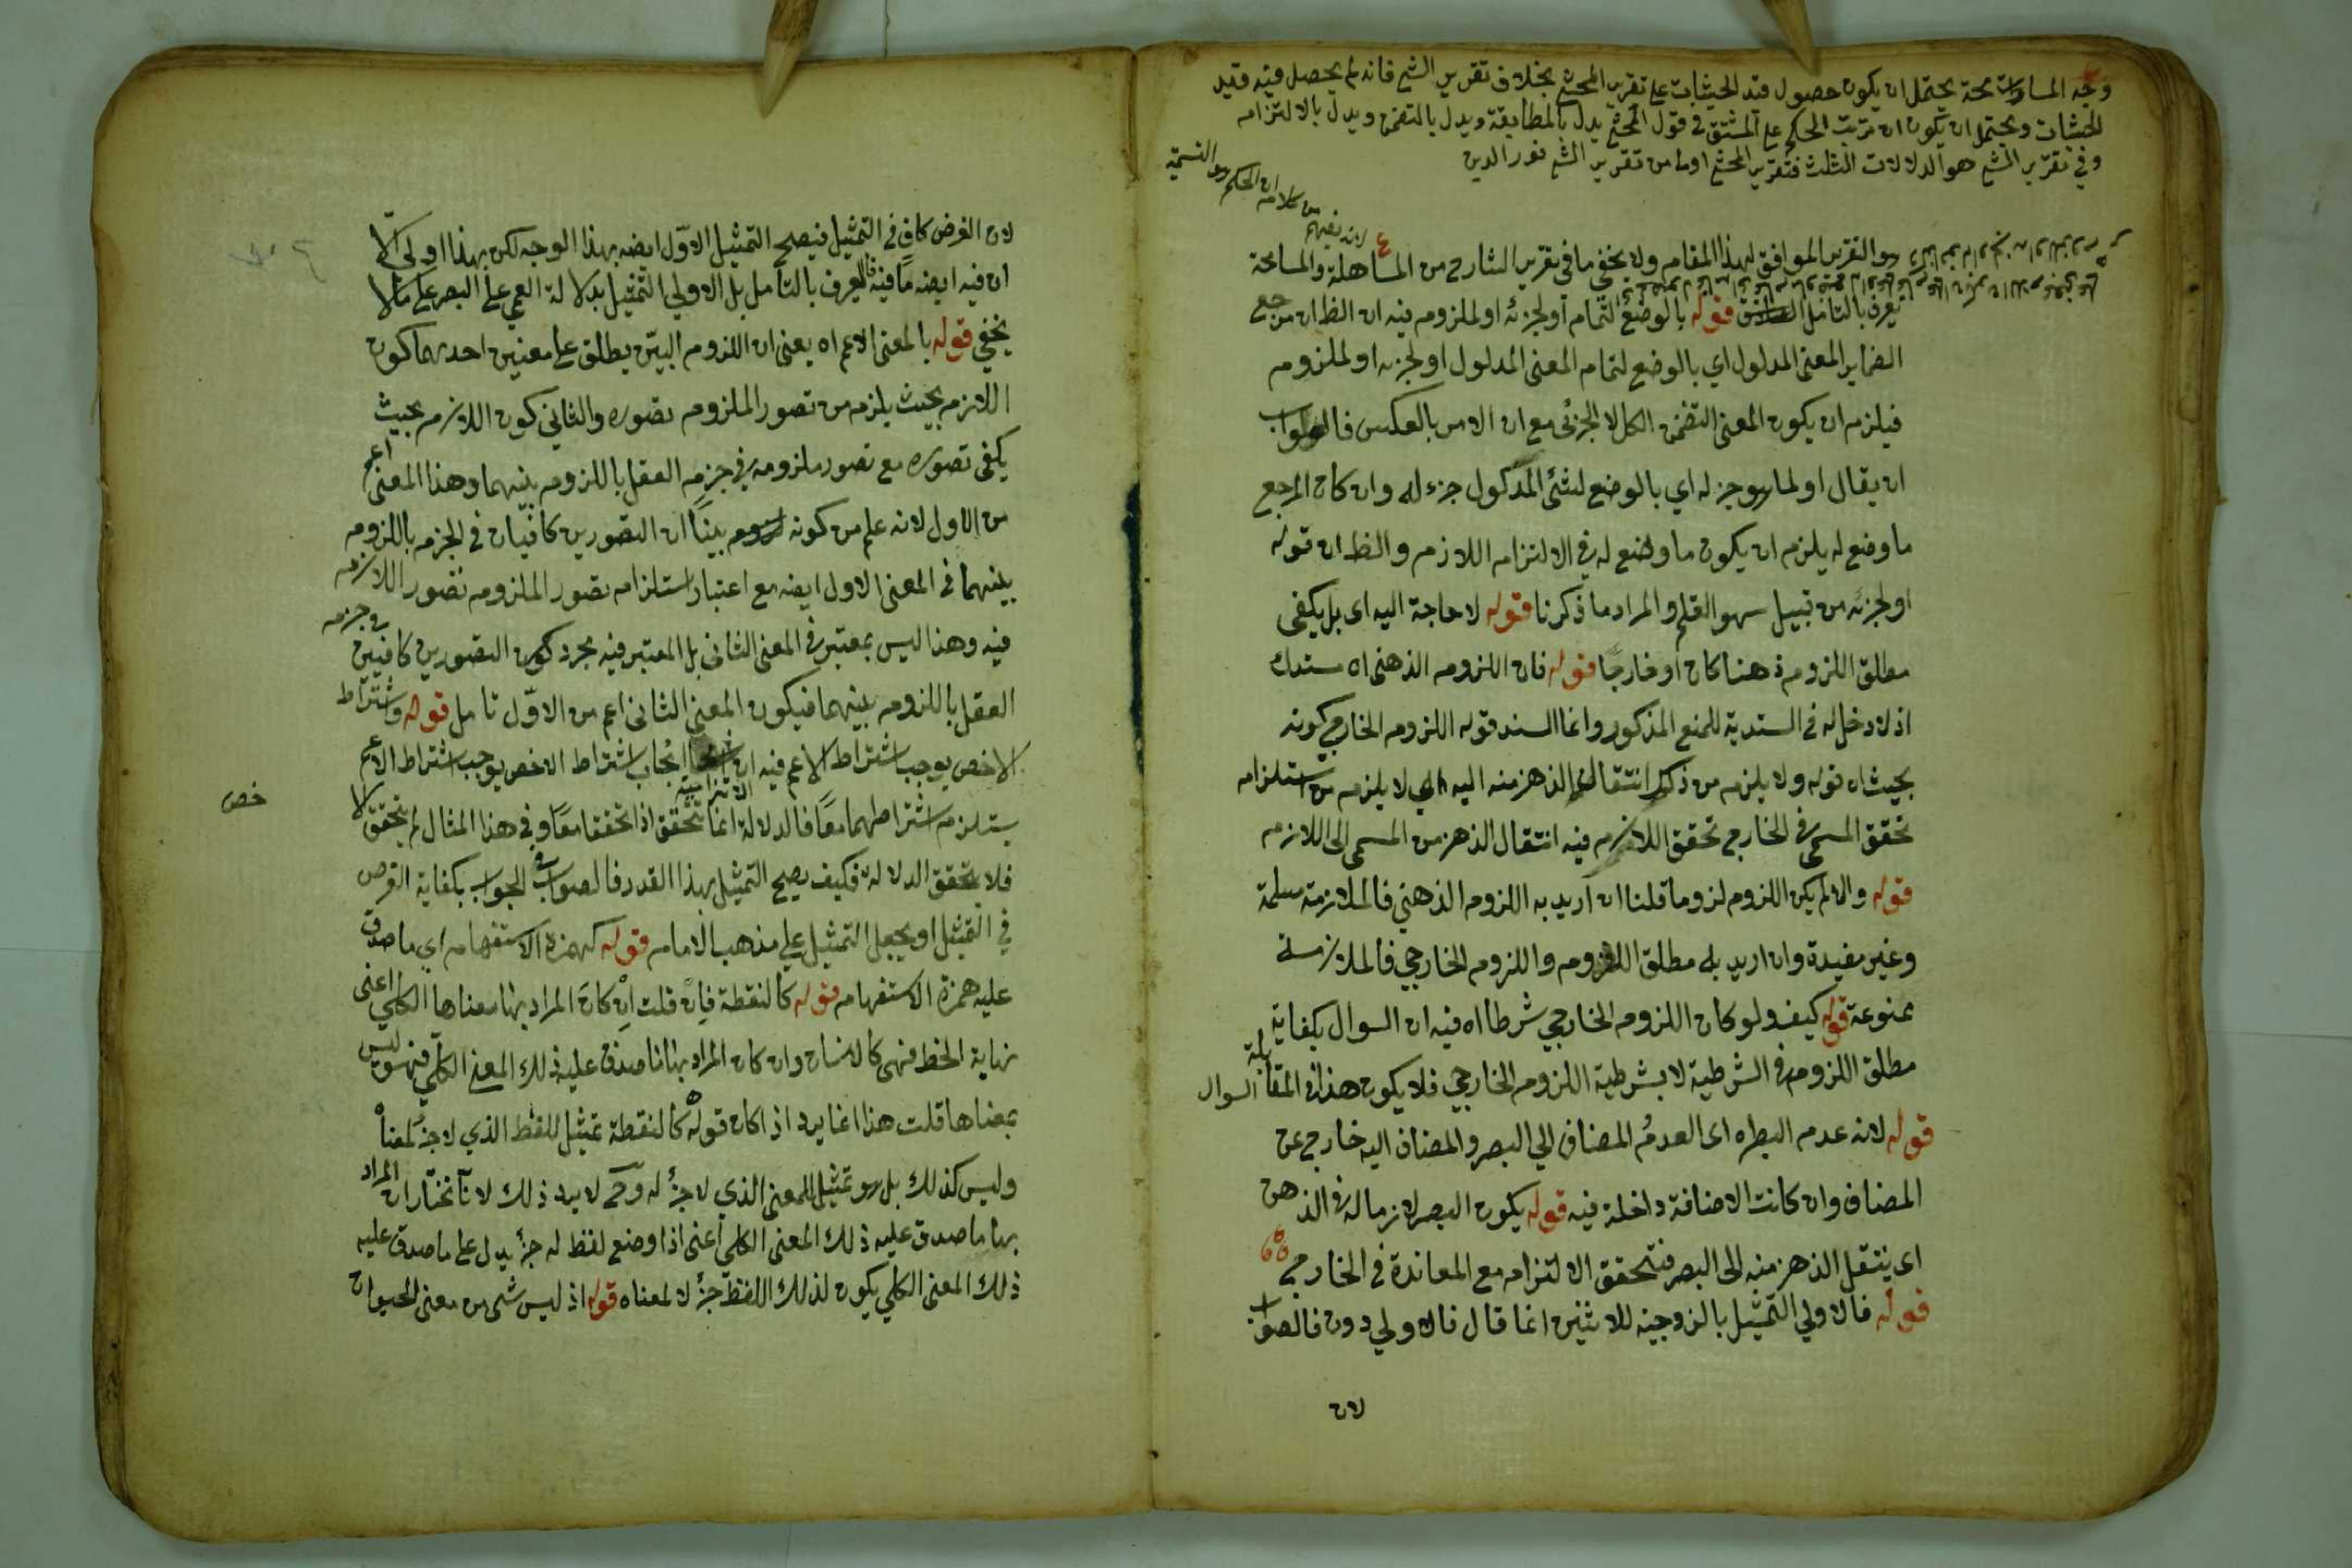 وجه المسامحة يحتمل ان يكون حصول قيد الحيثيات على تقرير المحشي بخلاف تقرير الشم فانه لم يحصل فيه قيد
الحيثيات ويحتمل ان يكون ان ترتب الحكم على المشتق في قول المحشي يدل بالمطابقة ويدل بالتضمن ويدل بالالتزام
وفي تقرير الشم هو الدلالات الثلث فتقرير المحشي اولى من تقرير الشم نور الدين
لانه يفهم من كلامه ان الحكم
هو التقرير الموافق لهذا المقام ولا يخفى ما في تقرير الشارح من المساهلة والمسامحة
يعرف بالتامل الصادق قوله بالوضع لتمام او لجزئه او لملزومه فيه ان الظ ان مرجع
الضماير المعنى المدلول اي بالوضع لتمام المعنى المدلول او لجزئه او لملزومه
فيلزم ان يكون المعنى التضمن الكل لا الجزئى مع ان الامر بالعكس فالصواب
ان يقال او لما هو جزء له اي بالوضع لشئ المدلول جزء له وان كان المرجع
ما وضع له يلزم ان يكون ما وضع له في الالتزام اللازم والظ ان قوله
او لجزئه من قبيل سهو القلم والمراد ما ذكرنا قوله لا حاجة اليه اى بل يكفى
مطلق اللزوم ذهنا كان او خارجًا قوله فان اللزوم الذهنى اه مستدرك
اذ لا دخل له في السندية للمنع المذكور وانما السند قوله اللزوم الخارجي كونه
بحيث اه قوله ولا يلزم من ذلك انتقال الذهن منه اليه اي لا يلزم من استلزام
تحقق المسمى في الخارج تحقق اللازم فيه انتقال الذهن من المسمى الى اللازم
قوله والا لم يكن اللزوم لزوما قلنا ان اريد به اللزوم الذهني فالملازمة مسلمة
وغير مفيدة وان اريد به مطلق اللزوم واللزوم الخارجي فالملازمة
ممنوعة قوله كيف ولو كان اللزوم الخارجي شرطا اه فيه ان السوال بكفاية
مطلق اللزوم في الشرطية لا بشرطية اللزوم الخارجي فلا يكون هذا في المقابلة السوال
قوله لانه عدم البصر اه اى العدم المضاف الي البصر والمضاف اليه خارج عن
المضاف وان كانت الاضافة داخلة فيه قوله يكون البصر لازما له في الذهن
اى ينتقل الذهن منه الى البصر فتحقق الالتزام مع المعاندة في الخارج
قوله فالاولي التمثيل بالزوجية للاثنين انما قال فالاولي دون فالصواب
لان
لان الفرض كاف في التمثيل فيصح التمثيل الاوّل ايضه بهذا الوجه لكن بهذا اولى الا
ان فيه ايضه ما فيه فالعرف بالتامل بل الاولي التمثيل بدلالة العمي على البصر على ما لا
يخفي قوله بالمعنى الاعم اه يعنى ان اللزوم البيّن يطلق على معنيين احدهما كون
اللازم بحيث يلزم من تصور الملزوم تصوره والثاني كون اللازم بحيث
يكفى تصوره مع تصور ملزومه في جزم العقل باللزوم بينهما وهذا المعنى اعم
من الاول لانه علم من كونه لزوم بينًا ان التصورين كافيان في الجزم باللزوم
بينهما في المعنى الاول ايضه مع اعتبار استلزام تصور الملزوم تصور اللازم
فيه وهذا ليس بمعتبر في المعنى الثانى بل المعتبر فيه مجرد كون التصورين كافيين في جزم
العقل باللزوم بينهما فيكون المعنى الثانى اعم من الاوّل تامل قوله واشتراط
الاخص يوجب اشتراط الاعم فيه ان ايجاب اشتراط الاخص يوجب اشتراط الاعم
يستلزم اشتراطهما معًا فالدلالة الالتزامية انما تتحقق اذا تحققا معًا وفي هذا المثال لم يتحقق الا
خص
فلا يتحقق الدلالة فكيف يصح التمثيل بهذا القدر فالصواب في الجواب بكفاية الفرض
في التمثيل او يجعل التمثيل علي مذهب الامام قوله كهمزة الاستفهام اي ما صدق
عليه همزة الاستفهام قوله كالنقطة فان قلت ان كان المراد بها معناها الكلي اعنى
نهاية الخط فهى كالانسان وان كان المراد بها ما صدق عليه ذلك المعنى الكلي فهو ليس
بمعناها قلت هذا انما يرد اذا كان قوله كالنقطة تمثيل للفظ الذي لا جزء لمعناه
وليس كذلك بل هو تمثيل للمعنى الذي لا جزء له وح لا يرد ذلك لانا نختار ان المراد
بها ما صدق عليه ذلك المعنى الكلي اعنى اذا وضع لفظ له جزء يدل على ما صدق عليه
ذلك المعنى الكلي يكون لذلك اللفظ جزء لا لمعناه قوله اذ ليس شى من معنى الحيوان